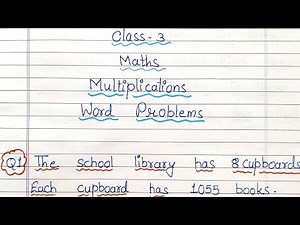 Class-3
Maths
Multiplications
Word Problems
Q1 The school library has 8 cupboards
Each cupboard has 1055 books.